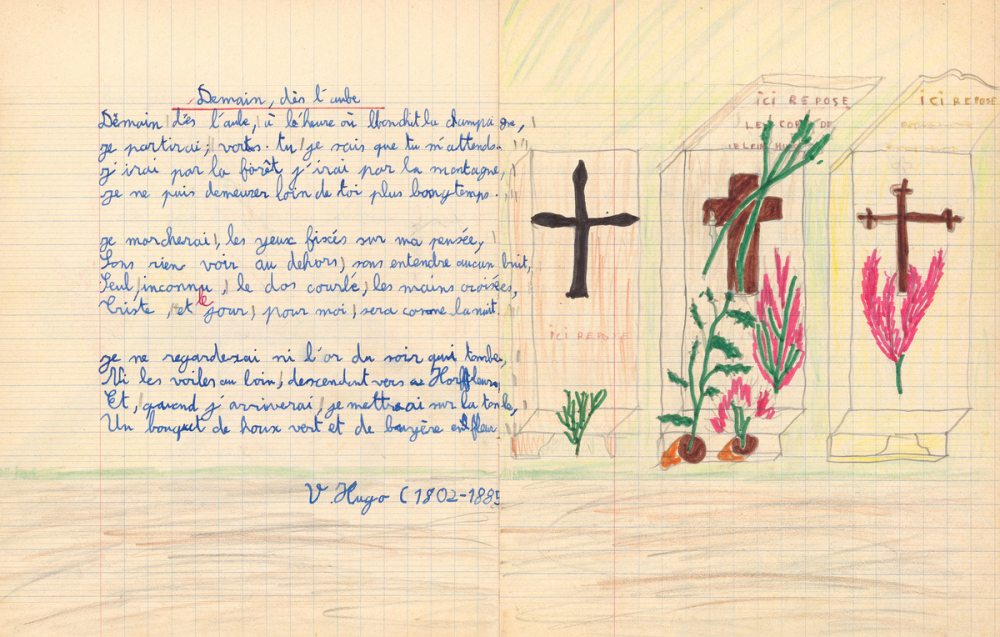 Demain, dès l'aube
Demain dès l'aube, à l'heure où blondit la champagne,
je partirai; vois tu je sais que tu m'attends.
j'irai par la forêt j'irai par la montagne,
je ne puis demeurer loin de toi plus longtemps.
je marcherai, les yeux fixés sur ma pensée,
Sans rien voir au dehors, sans entendre aucun bruit,
Seul, inconnu, le dos courbé, les mains croisées,
Triste, et le jour, pour moi, sera comme la nuit.
je ne regarderai ni l'or du soir qui tombe,
Ni les voiles au loin, descendant vers Harfleur,
Et, quand j'arriverai, je mettrai sur la tombe,
Un bouquet de houx vert et de bruyère en fleur
V. Hugo (1802-1885
ICI REPOSE
ICI REPOSE
LE CORPS DE
ICI REPOSE